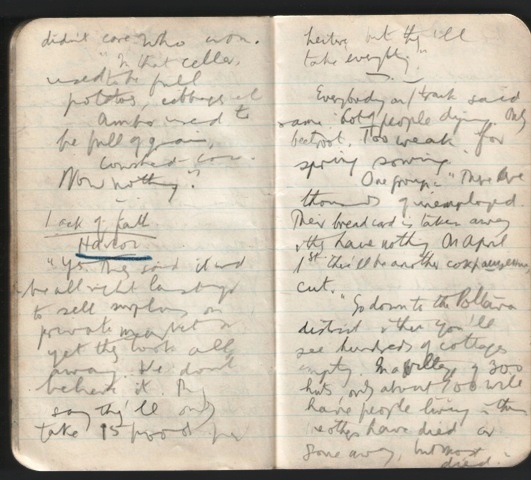 didn't care who won.
"In that cellar,
used to be full
potatoes, cabbages etc
Ambar used to
be full of grain,
cow
Now nothing."
Lack of faith
"Yes. They said it wd
be all right last year
to sell surplus on
private market &
yet they took all
away. We don't
believe it. They
say they'll only
take 15 pood per
hectare but they'll
take everything."
Everybody on track said
same. Lot of people dying. Only
beetroot. Too weak for
spring sowing.
One group: "There are
thousands of unemployed.
Their breadcard is taken away
& they have nothing. On April
1st there'll be another
cut.
"Go down to the Poltava
district & there you'll
see hundreds of cottages
empty. In a village of 300
huts, only about 100 will
have people living in them
the others have died or
gone away, but most
died.